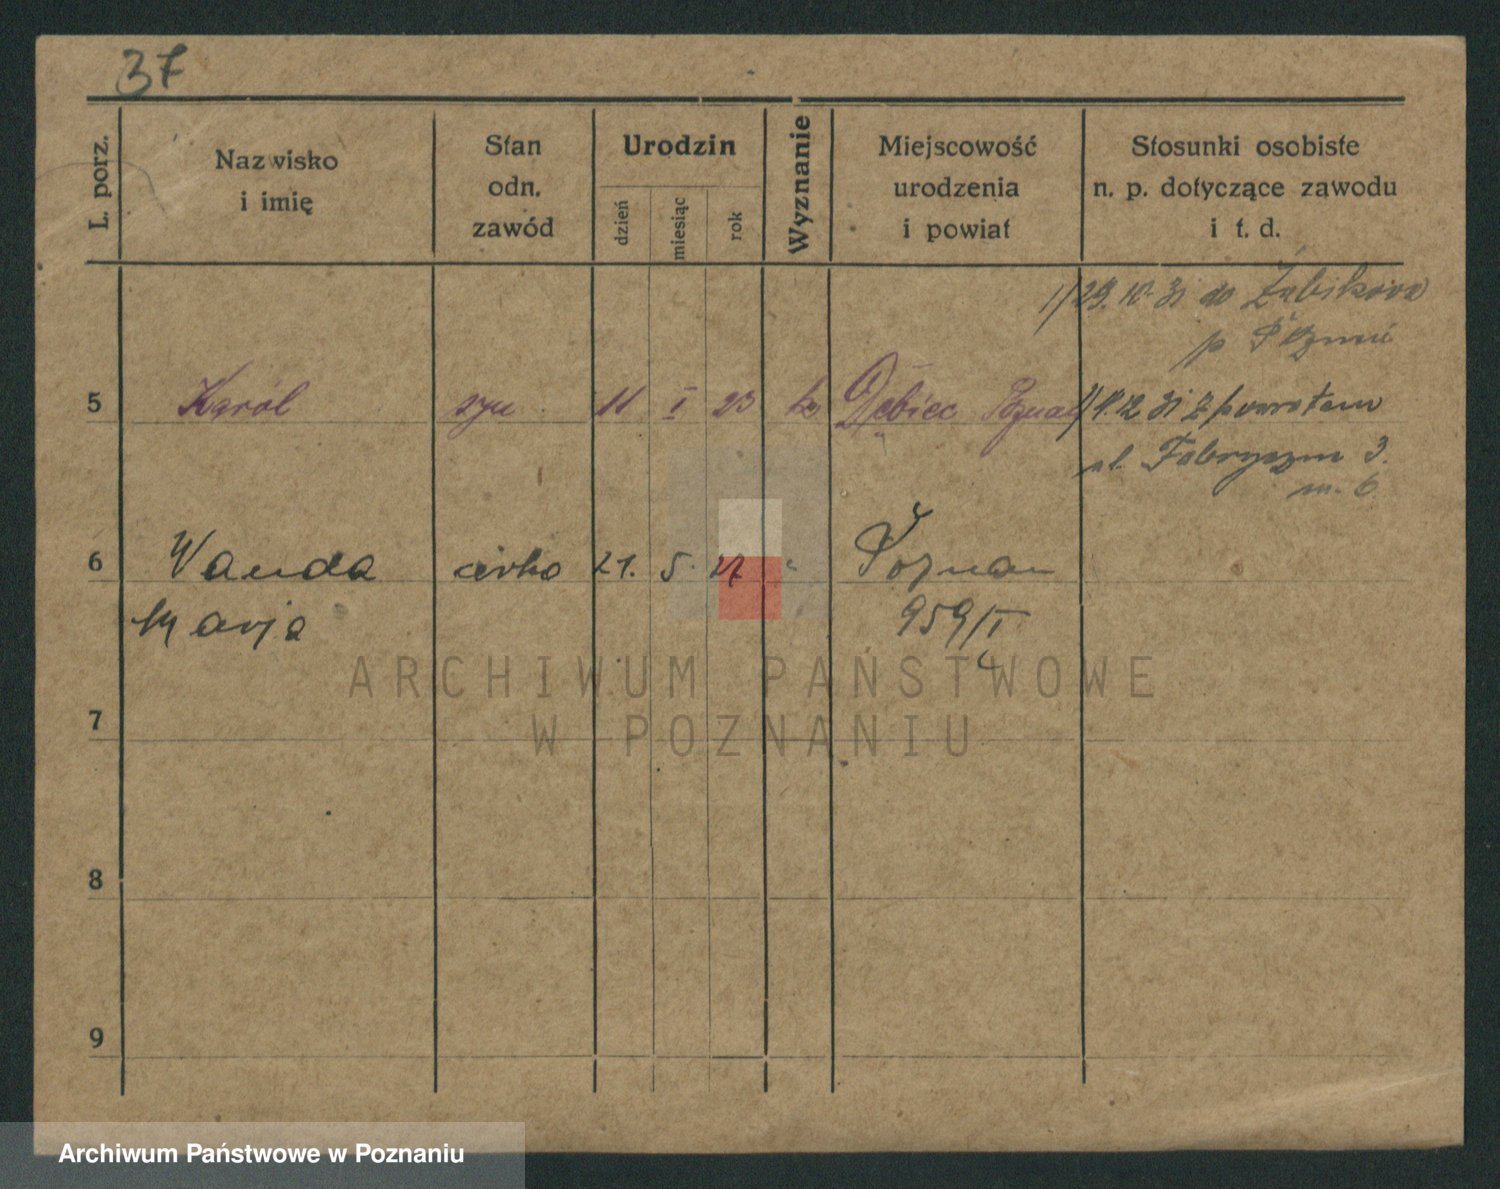 37
L. porz.
Nazwisko
i imię
Stan
odn.
zawód
Urodzin
dzień
miesiąc
rok
Wyznanie
Miejscowość
urodzenia
i powiat
Stosunki osobiste
n. p. dotyczące zawodu
i t. d.
1/ 29. 10. 31 do Żabikowa
p
5 Karól syn 11 I 23 Dębiec Poznań 12 31 z powrotem
ul. 3.
m. 6
6 Wanda córka 21. 5. 27 " Poznan
Marja 959/I
4
ARCHIWUM PAŃSTWOWE
W POZNANIU
7
8
9
Archiwum Państwowe w Poznaniu